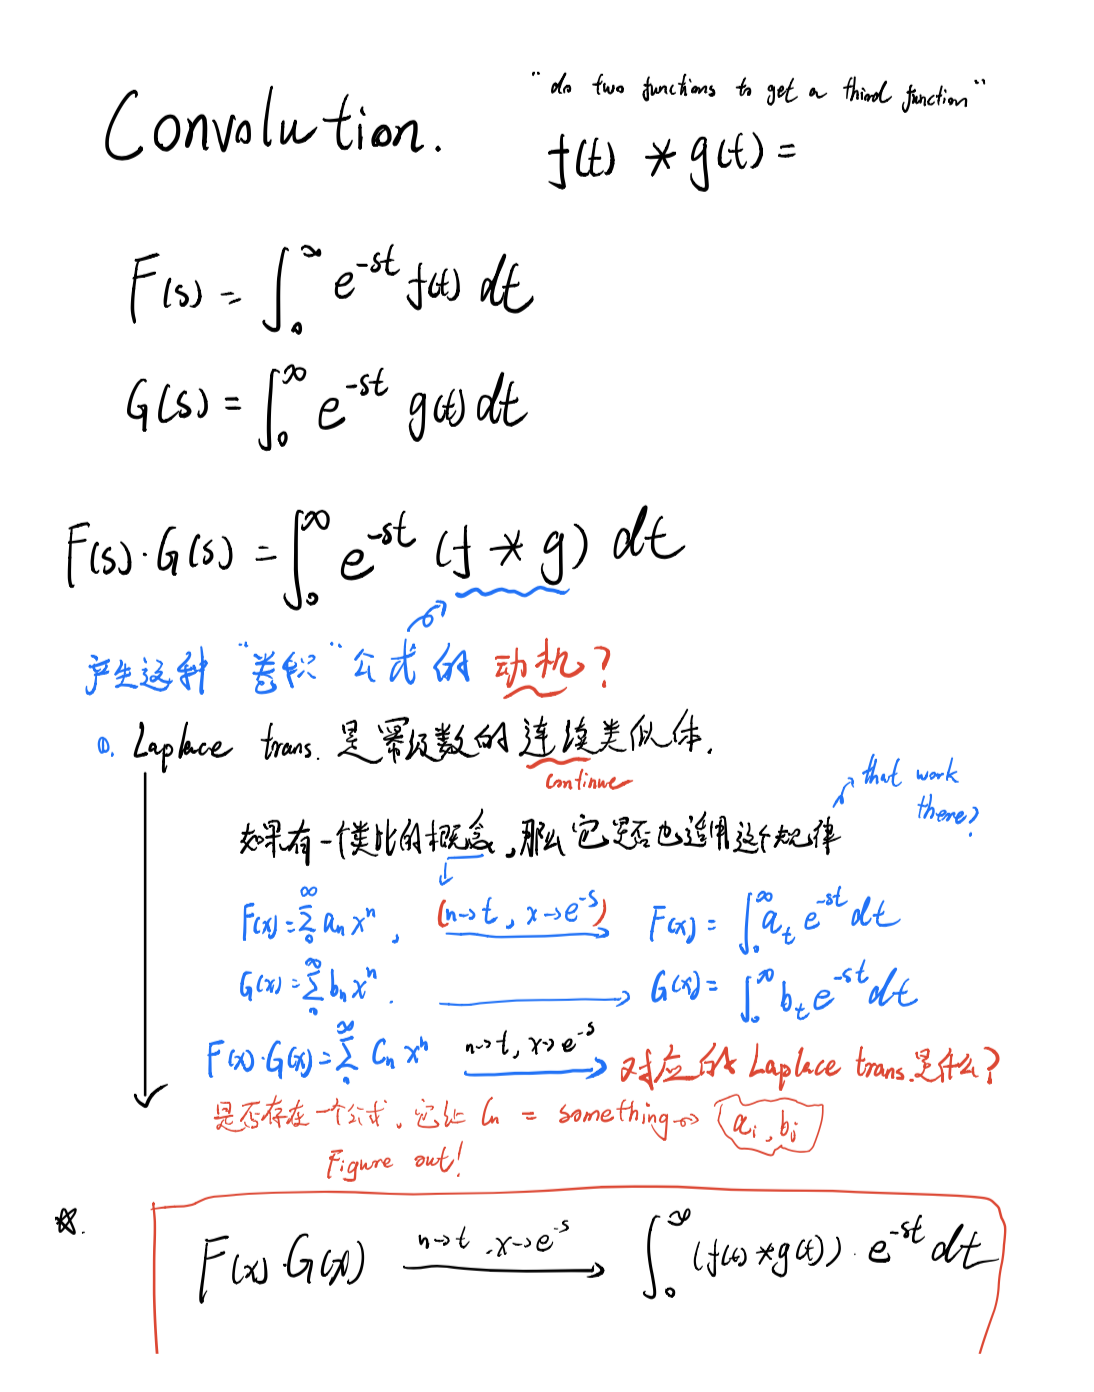 Convolution.
"do two functions to get a third function"
f(t) * g(t) =
F(s) = ∫₀^∞ e^{-st} f(t) dt
G(s) = ∫₀^∞ e^{-st} g(t) dt
F(s)·G(s) = ∫₀^∞ e^{-st} (f * g) dt
产生这种 "卷积" 公式的 动机?
①. Laplace trans. 是幂级数的连续类似体.
continue
that work there?
如果有一个类比的概念, 那么它是否也适用这个规律
F(x) = Σ₀^∞ aₙ xⁿ , (n→t, x→e^{-s}) → F(x) = ∫₀^∞ a_t e^{-st} dt
G(x) = Σ₀^∞ bₙ xⁿ . → G(x) = ∫₀^∞ b_t e^{-st} dt
F(x)·G(x) = Σ₀^∞ Cₙ xⁿ n→t, x→e^{-s} → 对应的 Laplace trans. 是什么?
是否存在一个公式, 它让 Cₙ = something → aᵢ, bⱼ
Figure out!
☆. F(x)·G(x) n→t , x→e^{-s} → ∫₀^∞ (f(t) * g(t)) · e^{-st} dt